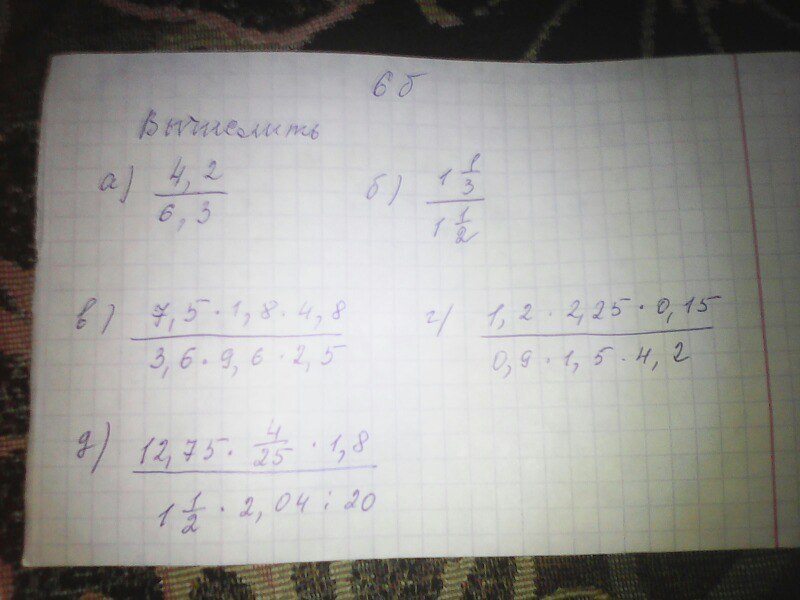 6б
Вычислить
а) 4,2 / 6,3
б) 1 1/3 / 1 1/2
в) 7,5 · 1,8 · 4,8 / 3,6 · 9,6 · 2,5
г) 1,2 · 2,25 · 0,15 / 0,9 · 1,5 · 4,2
д) 12,75 · 4/25 · 1,8 / 1 1/2 · 2,04 : 20